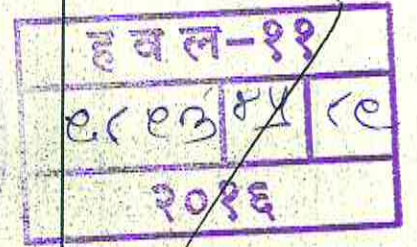 हवल-११
९८९३ ४५ ८९
२०१६